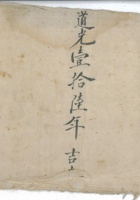 道光壹拾陸年 吉立